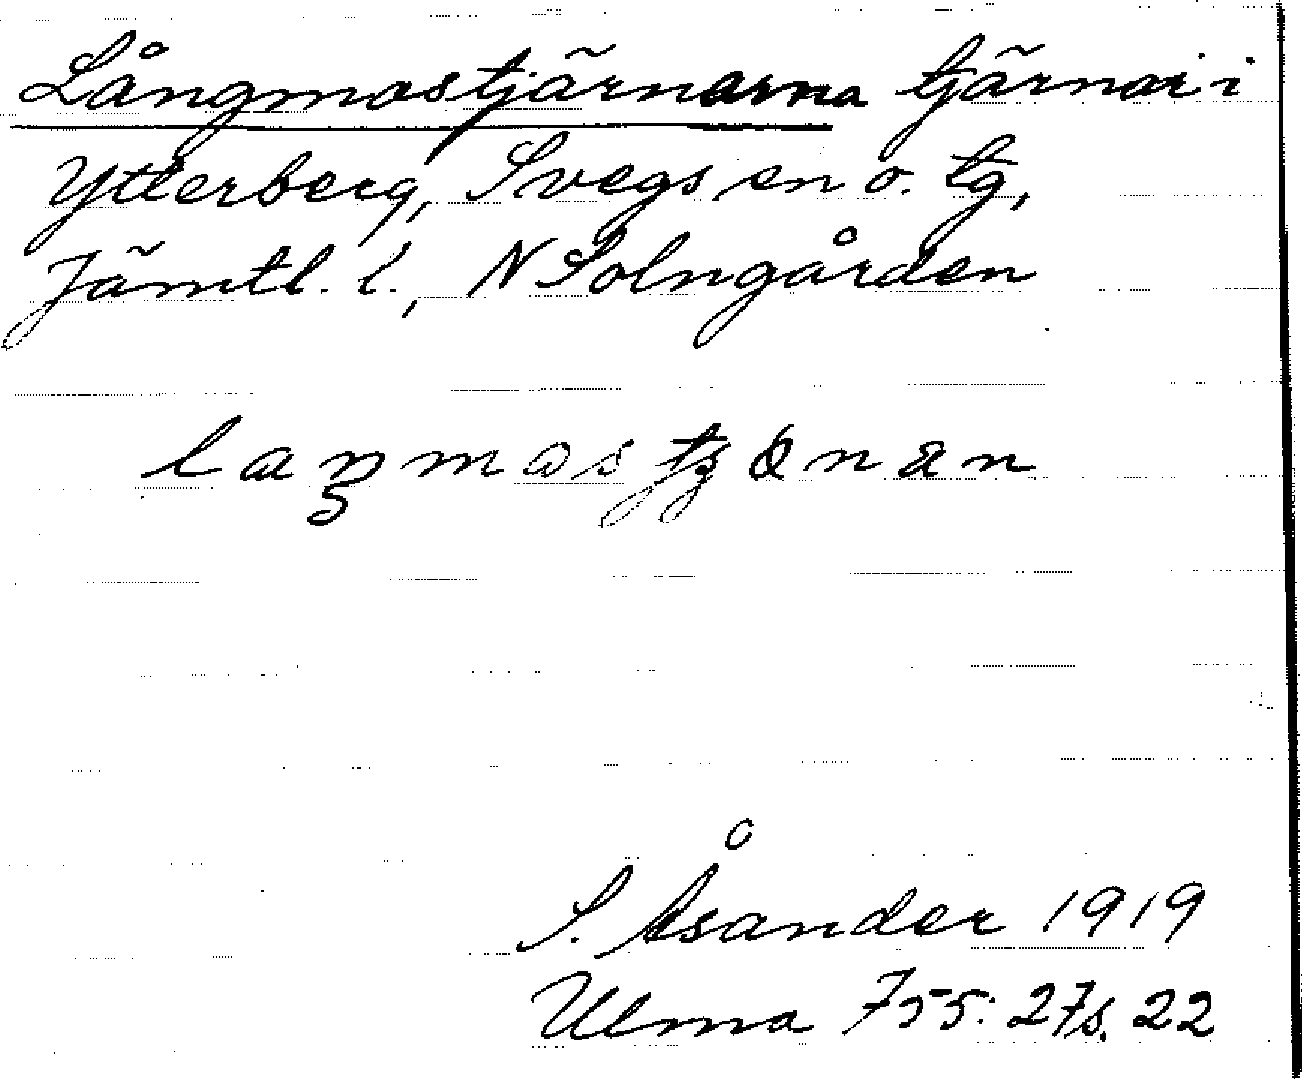 Långmostjärnarna tjärnar i
Ytterberg, Svegs sn o. tg,
Jämtl. l., N Solngården
S. Åsander 1919
Ulma 755: 27 s. 22